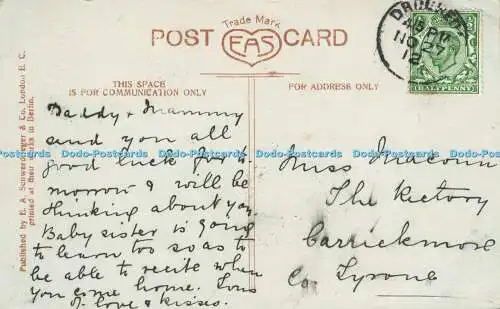 Trade Mark
POST EAS CARD
THIS SPACE
IS FOR COMMUNICATION ONLY
FOR ADDRESS ONLY
Published by E. A. Schwerdtfeger & Co., London E. C.
printed at their works in Berlin.
NO 27
12
HALFPENNY
Daddy & Mammy
send you all
good luck for to
morrow I will be
thinking about you.
Baby sister is going
to learn too so as to
be able to recite when
you come home. Tons
of love & kisses.
Miss Macoun
The Rectory
Carrickmore
Co Tyrone
Dodo-Postcards Dodo-Postcards Dodo-Postcards Dodo-Postcards Dodo-Postcards